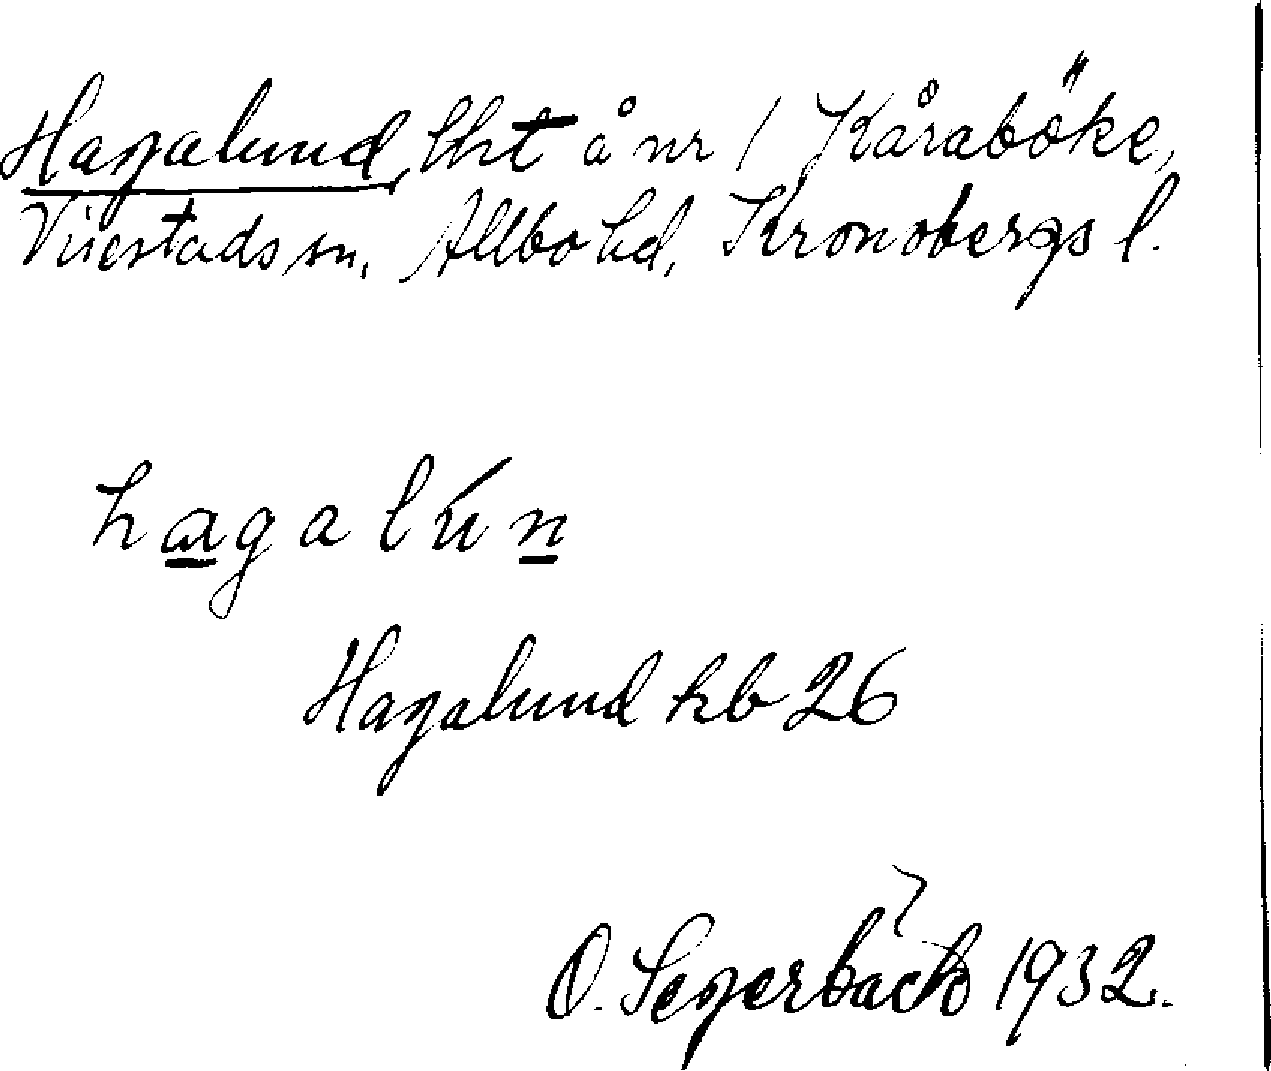 Hagalund, lht å nr 1 Kåraböke,
Virestads sn, Allbo hd, Kronobergs l.
hagalún
Hagalund kb 26
O. Segerbäck 1932.